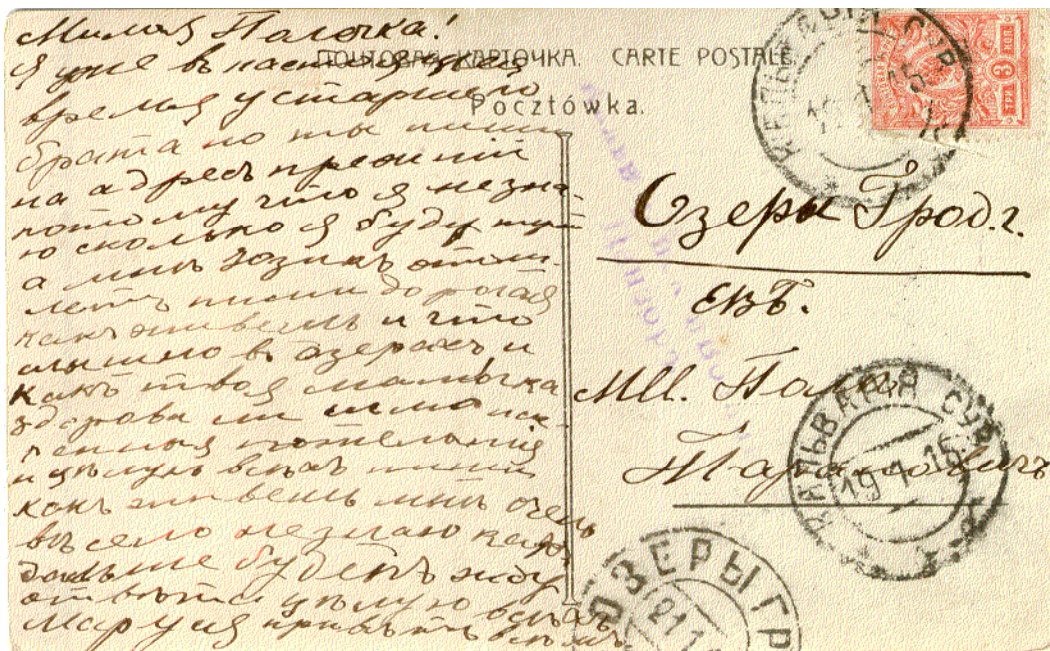 ПОЧТОВАЯ КАРТОЧКА. CARTE POSTALE.
Pocztówka.
Милая Палочка!
я уже въ настоящее
время у старшего
брата но ты пиши
на адресъ прежний
потому что я незна-
ю сколько я буду тут
а мнѣ
пиши дорогая
какъ живешь и что
слышно в озерахъ и
какъ твоя мамочка
здорова ли шлю
пожелания
и цѣлую всѣхъ пиши
какъ живешь мнѣ очень
весело незнаю какъ
дальше будетъ жду
отвѣта цѣлую всѣхъ
Маруся привѣтъ всѣмъ
Озеры Грод. г.
ЕВБ.
МЦ.
КАЛЬВАРІЯ СУВ.
19 1 15
ОЗЕРЫ ГР
21 1
3 КОП.
ТРИ